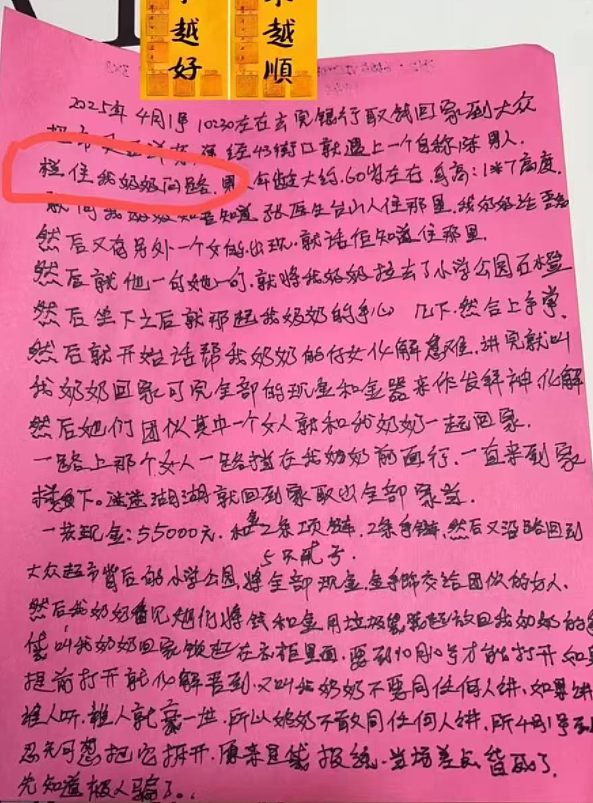 越好
越順
2025年4月1号10:30左右去完银行取钱回家到大众
街口就遇上一个自称 男人
拦住我奶奶问路, 年龄大约60岁左右,身高:1米7高度,
就问我奶奶知吾知道 医生台山人住那里,我奶奶话吾知
然后又有另外一个女的出现,就话佢知道住那里,
然后就他一句她一句,就将我奶奶拉去了小学公园石凳
然后坐下之后就 起我奶奶的手心 几下,然合上手掌,
然后就开始话帮我奶奶的仔女化解急难,讲完就叫
我奶奶回家 完全部的现金和金器来作发解神化解
然后她们团伙其中一个女人就和我奶奶一起回家,
一路上那个女人一路 在我奶奶前面行,一直来到家
楼下。迷迷湖湖就回到家取出全部家
一共现金:55000元,和金2条项链,2条手链,然后又沿路回到
5只戒子
大众超市背后的小学公园,将全部现金,金 交给团伙的女人,
然后我奶奶看见她们将钱和金用垃圾袋 放回我奶奶的
叫我奶奶回家锁 在衣柜里面,要到10月10号才能打开如果
提前打开就化解吾到,又叫我奶奶不要同任何人讲,如果讲
人听, 人就 ,所以奶奶不敢同任何人讲,所4月1号
忍 把它拆开,原来是 报纸,当场差点 死了,
先知道 人骗了。